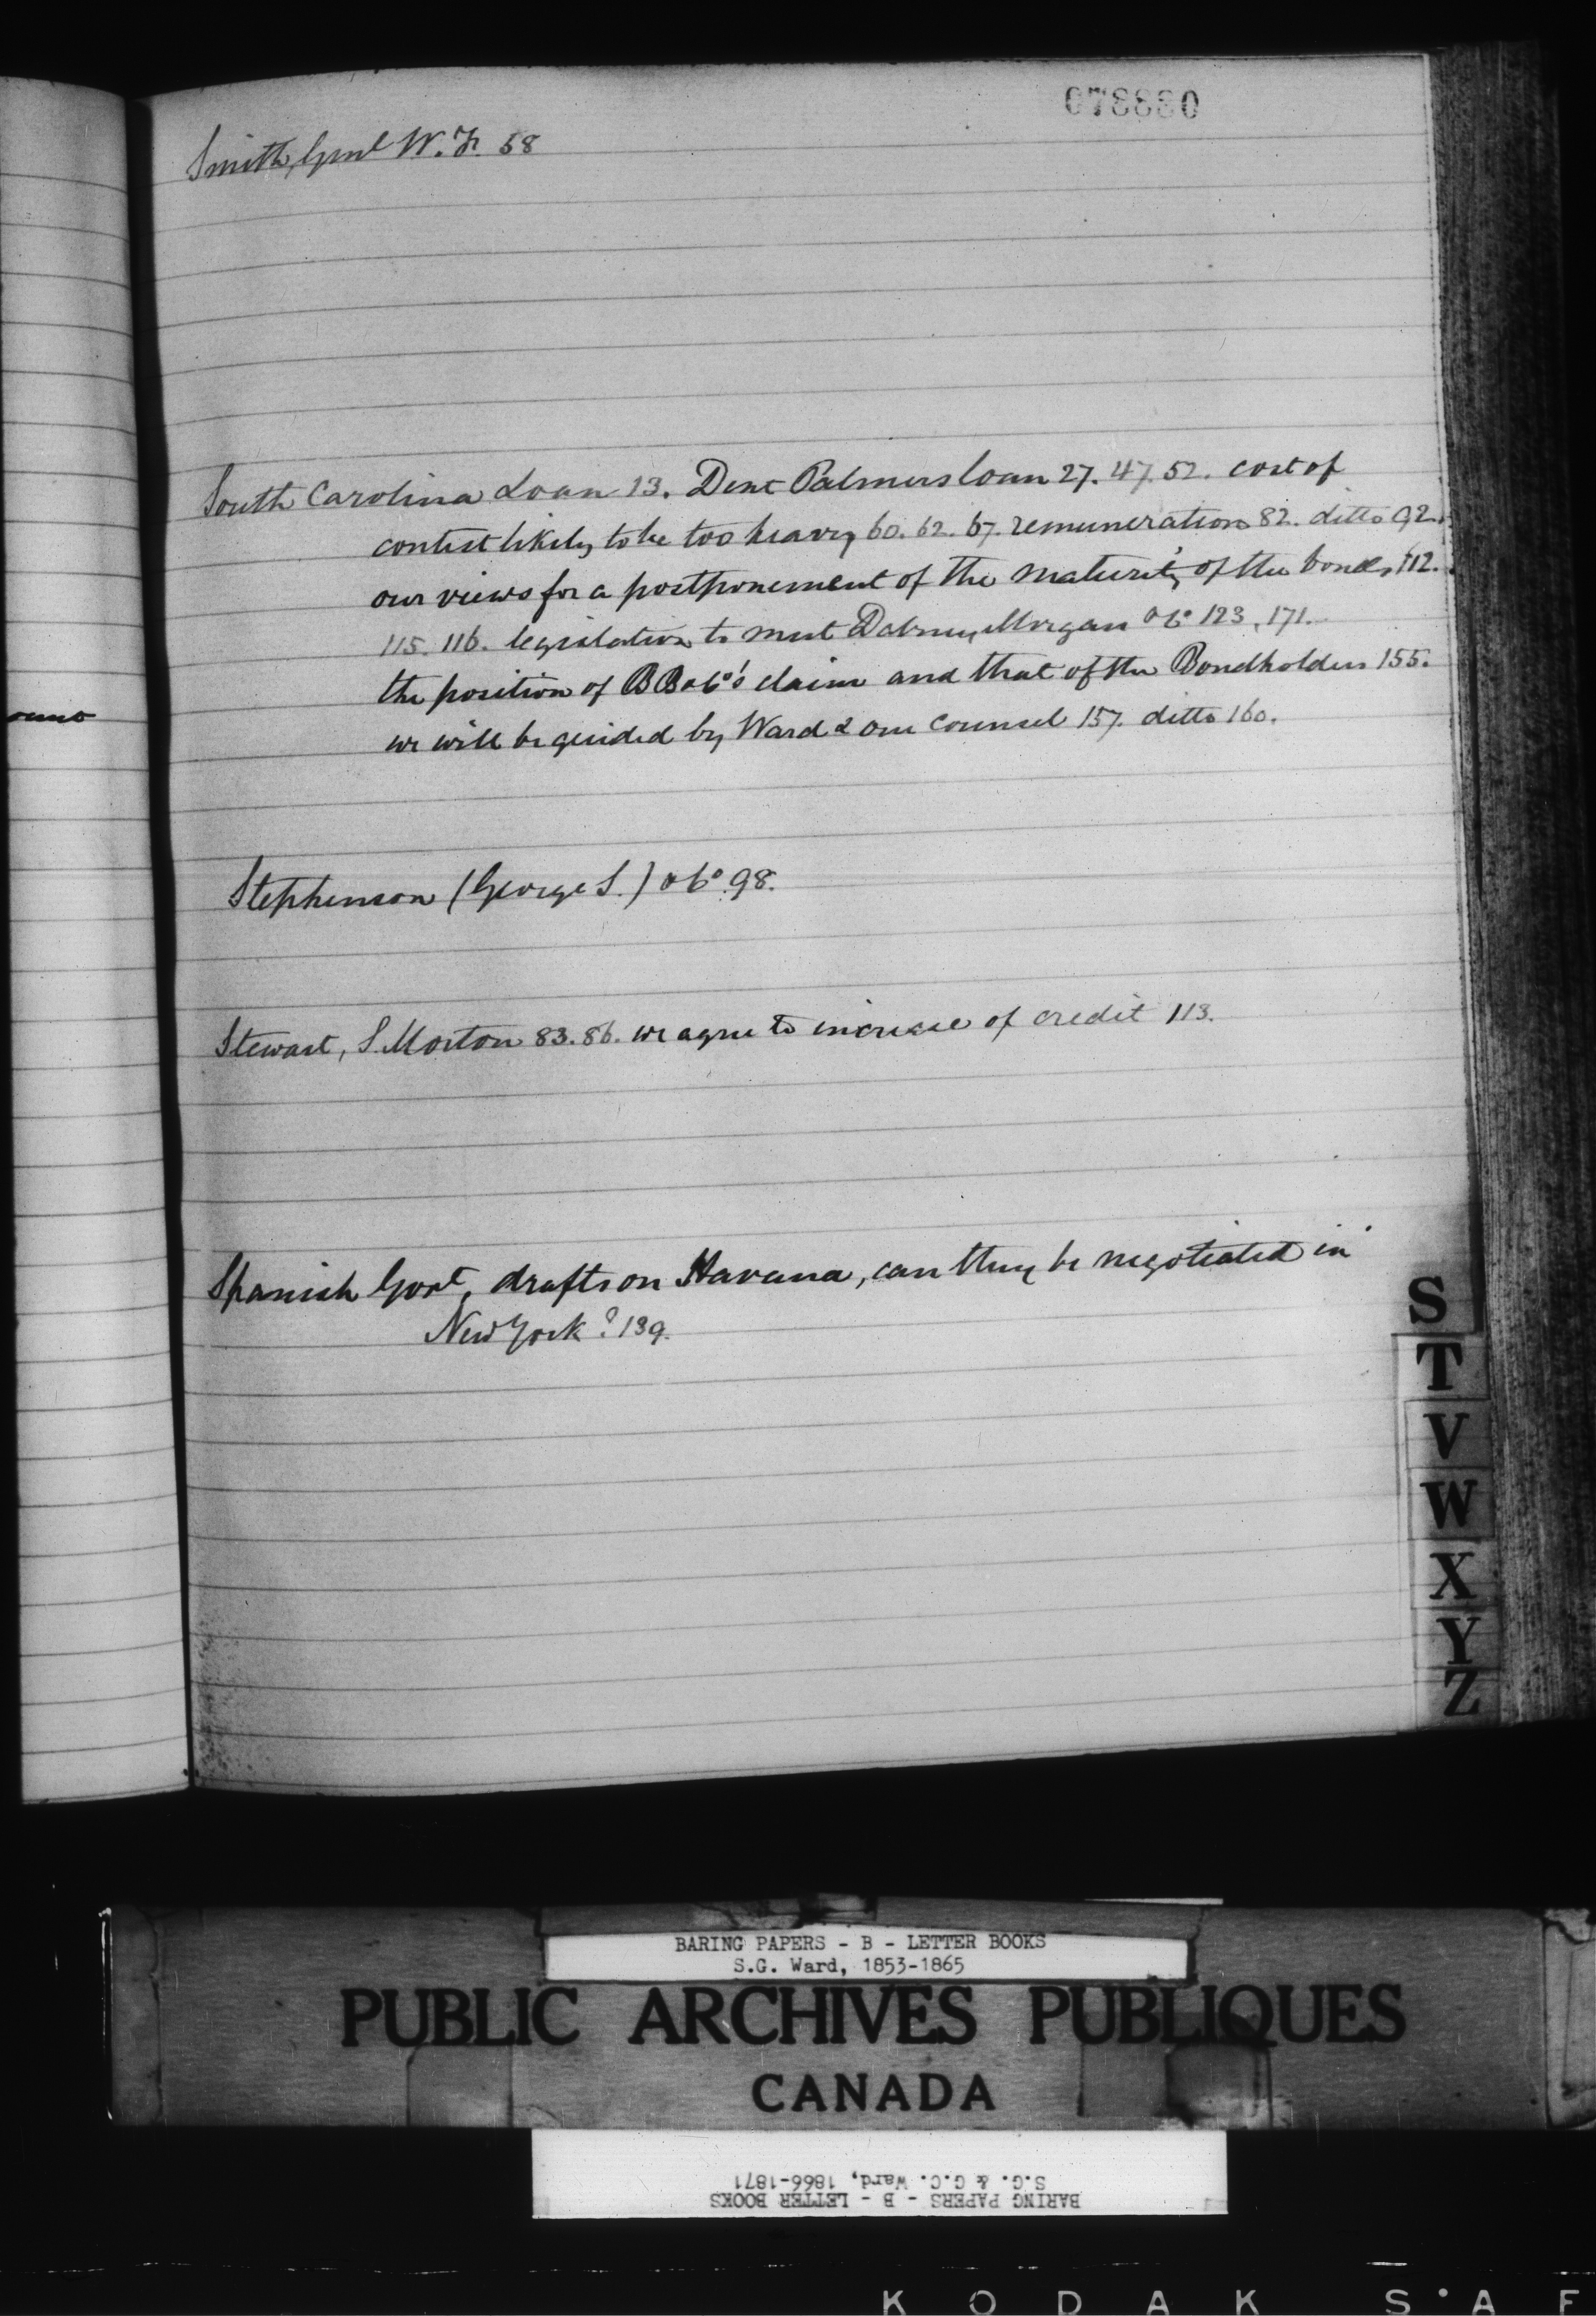 Smith, Genl W. F. 58
South Carolina Loan 13. Dent Palmers loan 27. 47. 52. cost of
contest likely to be too heavy 60. 62. 67. remuneration 82. ditto 92.
our views for a postponement of the maturity of the bonds 112.
115. 116. legislation to meet Dabney Morgan & Co 123, 171.
the position of BB & Co's claim and that of the Bondholders 155.
we will be guided by Ward & our Counsel 157. ditto 160.
Stephenson (George S.) & Co 98.
Stewart, S. Morton 83. 86. we agree to increase of credit 113.
Spanish Govt, drafts on Havana, can they be negotiated in
New York? 139.
S
T
V
W
X
Y
Z
BARING PAPERS - B - LETTER BOOKS
S.G. Ward, 1853-1865
PUBLIC ARCHIVES PUBLIQUES
CANADA
BARING PAPERS - B - LETTER BOOKS
S.G. & G.C. Ward, 1866-1871
KODAK S·AF